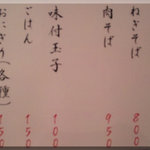 ねぎそば 800
肉そば 950
味付玉子 100
ごはん 150
おにぎり(各種) 150